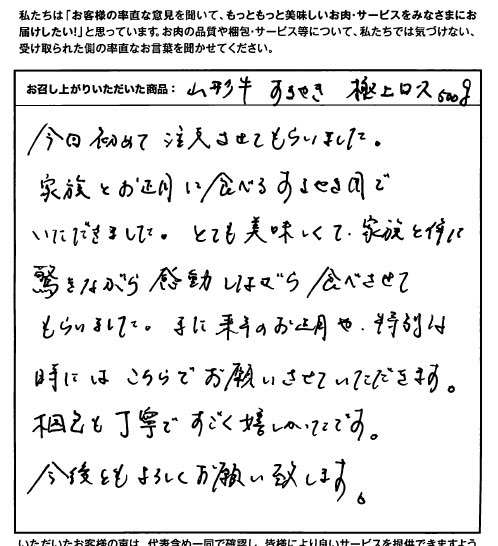 私たちは「お客様の率直な意見を聞いて、もっともっと美味しいお肉・サービスをみなさまにお
届けしたい!」と思っています。お肉の品質や梱包・サービス等について、私たちでは気づけない、
受け取られた側の率直なお言葉を聞かせてください。
お召し上がりいただいた商品: 山形牛 すきやき 極上ロース 500g
今回初めて注文させてもらいました。
家族とお正月に食べるすきやき用で
いただきました。とても美味しくて、家族と供に
驚きながら感動しながら食べさせて
もらいました。また来年のお正月や、特別な
時にはこちらでお願いさせていただきます。
梱包も丁寧ですごく嬉しかったです。
今後ともよろしくお願い致します。
いただいたお客様の声は、代表含め一同で確認し、皆様により良いサービスを提供できますよう